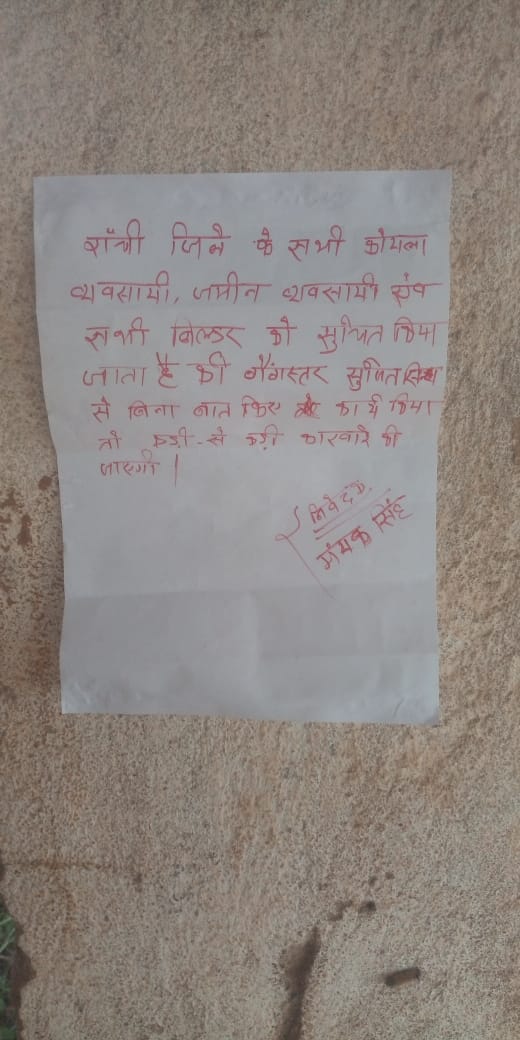 राँची जिले के सभी कोयला
व्यवसायी, जमीन व्यवसायी एंव
सभी बिल्डर को सुचित किया
जाता है की गैंगस्टर सुजित सिन्हा
से बिना बात किए कार्य किया
तो कड़ी-से कड़ी कारवारे की
जाएगी |
निवेदक
मंयक सिंह